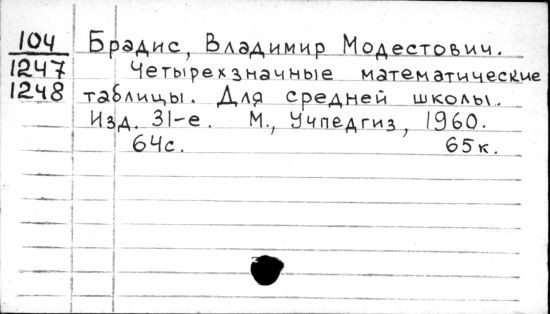 104 Брадис, Владимир Модестович.
1247 Четырехзначные математические
1248 таблицы. Для средней школы.
Изд. 31-е. М., Учпедгиз, 1960.
64с. 65к.